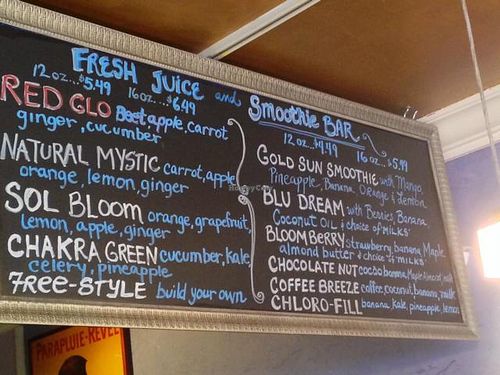 FRESH JUICE and
12 oz...$5.49 16 oz...$6.49
RED GLO Beet apple, carrot
ginger, cucumber
NATURAL MYSTIC carrot, apple
orange, lemon, ginger
SOL BLOOM orange, grapefruit,
lemon, apple, ginger
CHAKRA GREEN cucumber, kale,
celery, pineapple
FREE-STYLE build your own
Smoothie BAR
12 oz. $4.49 16 oz. $5.49
GOLD SUN SMOOTHIE with Mango,
Pineapple, Banana, Orange & Lemon
BLU DREAM with Berries, Banana
Coconut OIL & choice of milks
BLOOM BERRY strawberry, banana, Maple
almond butter & choice of milks
CHOCOLATE NUT cocoa banana, Maple, Almond, milk
COFFEE BREEZE coffee, coconut, banana, milk
CHLORO-FILL banana, kale, pineapple, lemon
PARAPLUIE-REVEL